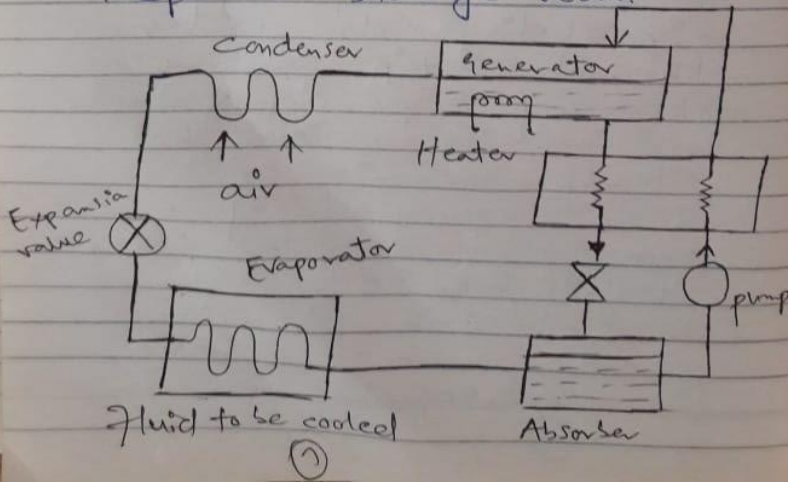 Condenser
Generator
Heater
air
Expansia
value
Evaporator
pump
Fluid to be cooled
Absorber